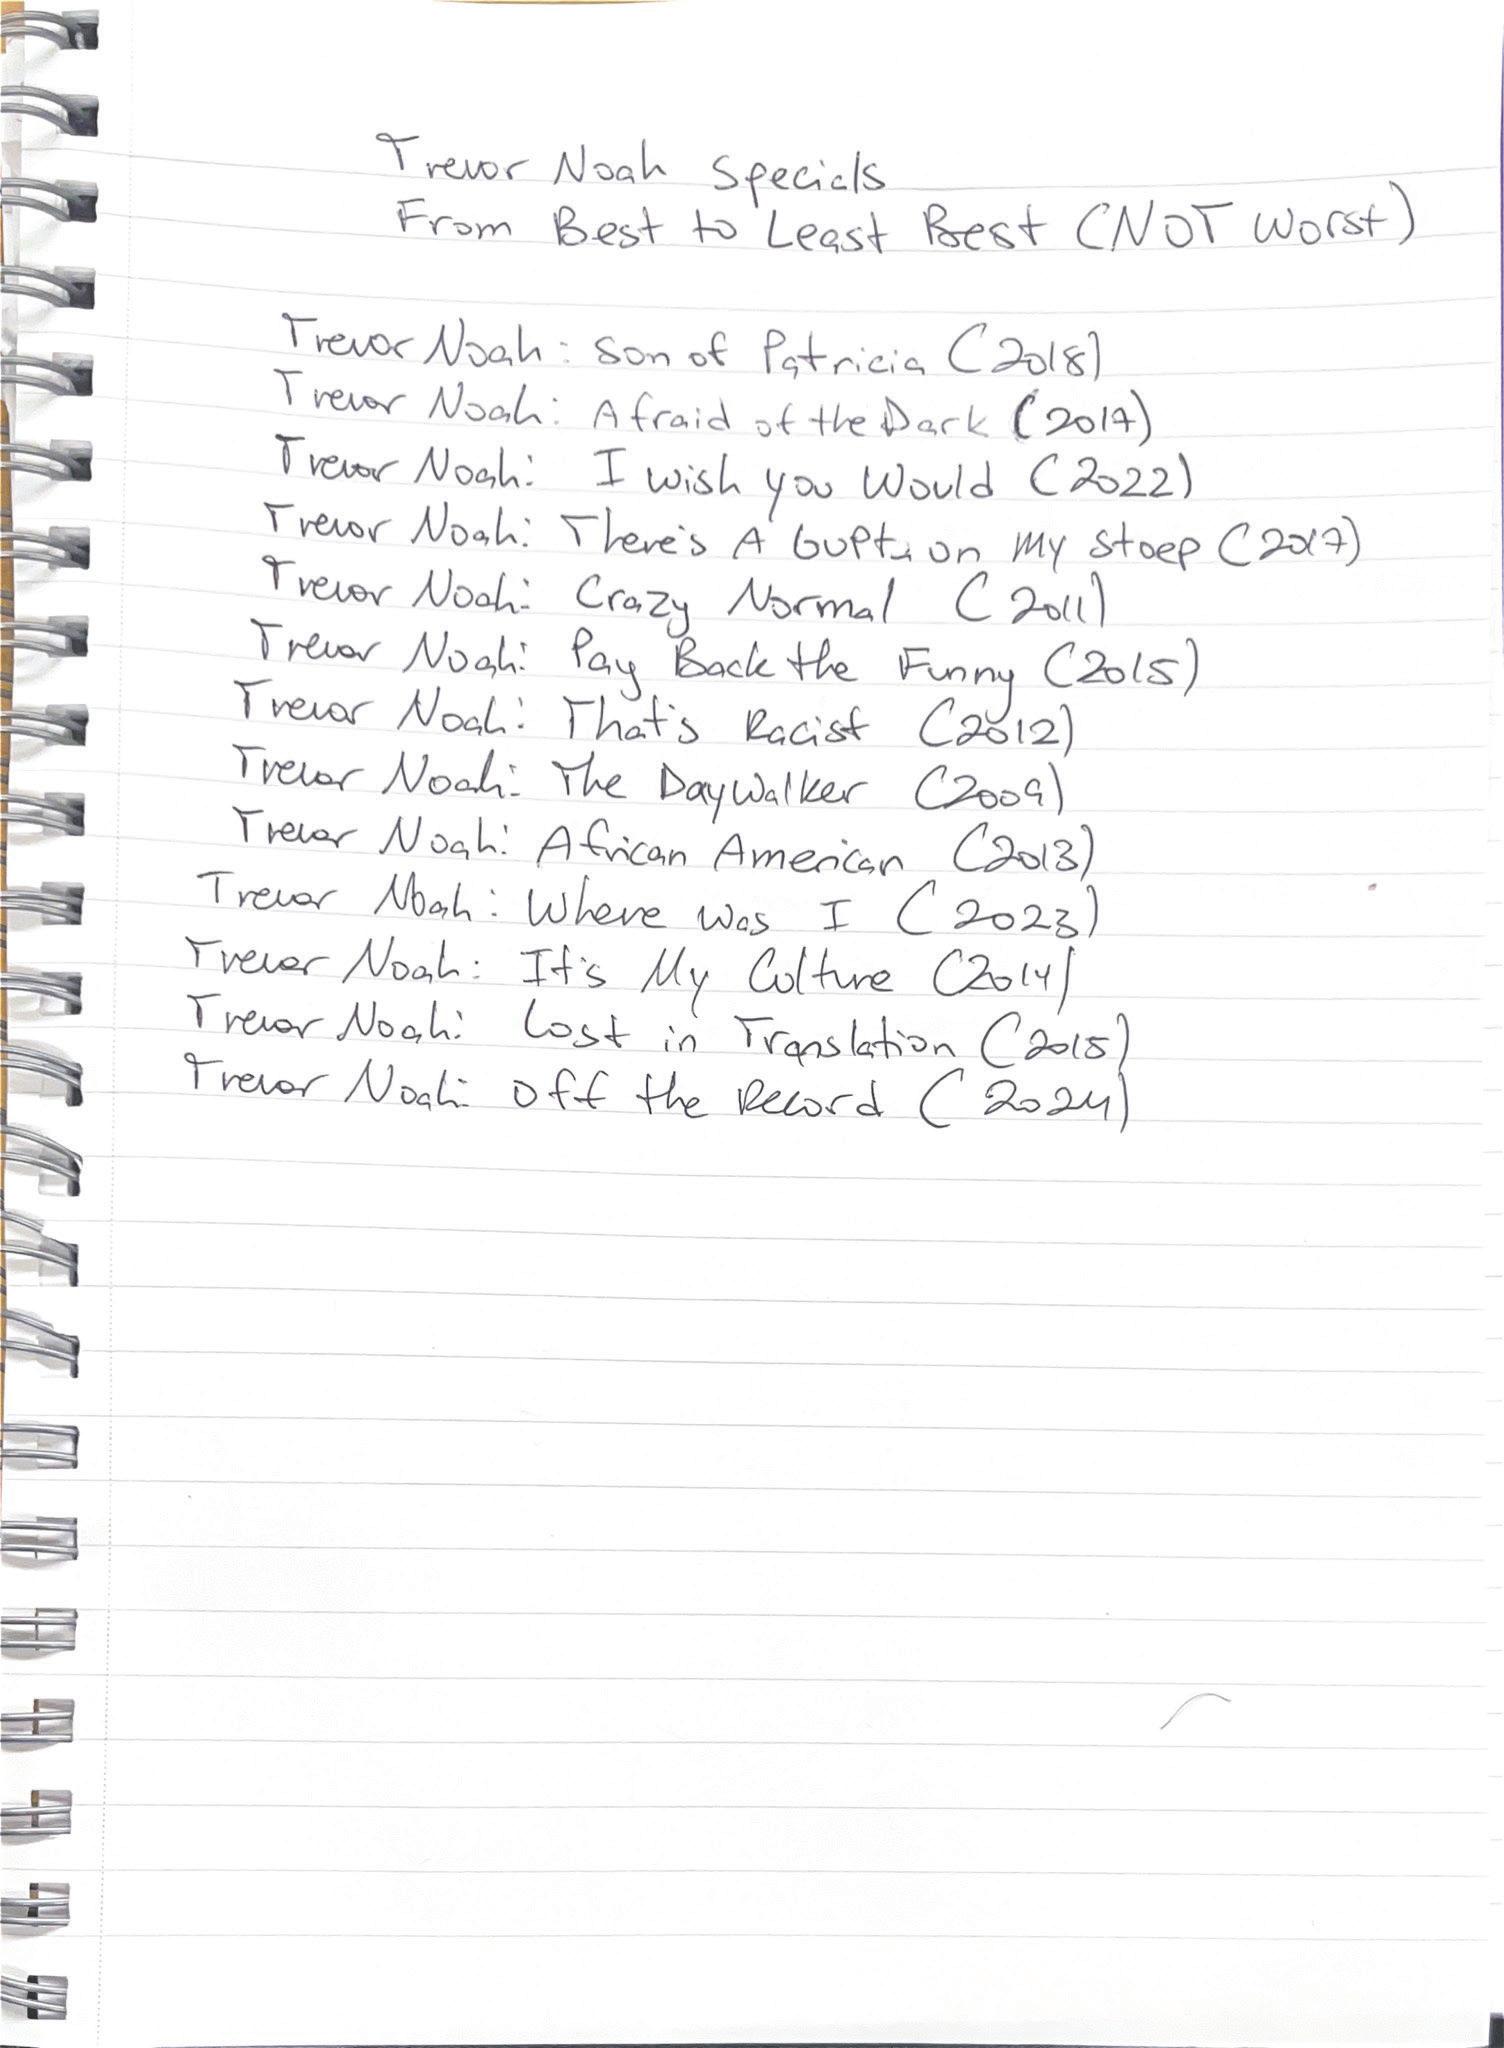 Trevor Noah Specials
From Best to Least Best (NOT Worst)
Trevor Noah: Son of Patricia (2018)
Trevor Noah: Afraid of the Dark (2017)
Trevor Noah: I wish you Would (2022)
Trevor Noah: There's A Gupta on My stoep (2017)
Trevor Noah: Crazy Normal (2011)
Trevor Noah: Pay Back the Funny (2015)
Trevor Noah: That's Racist (2012)
Trevor Noah: The DayWalker (2009)
Trevor Noah: African American (2013)
Trevor Noah: Where was I (2023)
Trevor Noah: It's My Culture (2014)
Trevor Noah: Lost in Translation (2015)
Trevor Noah: Off the Record (2024)